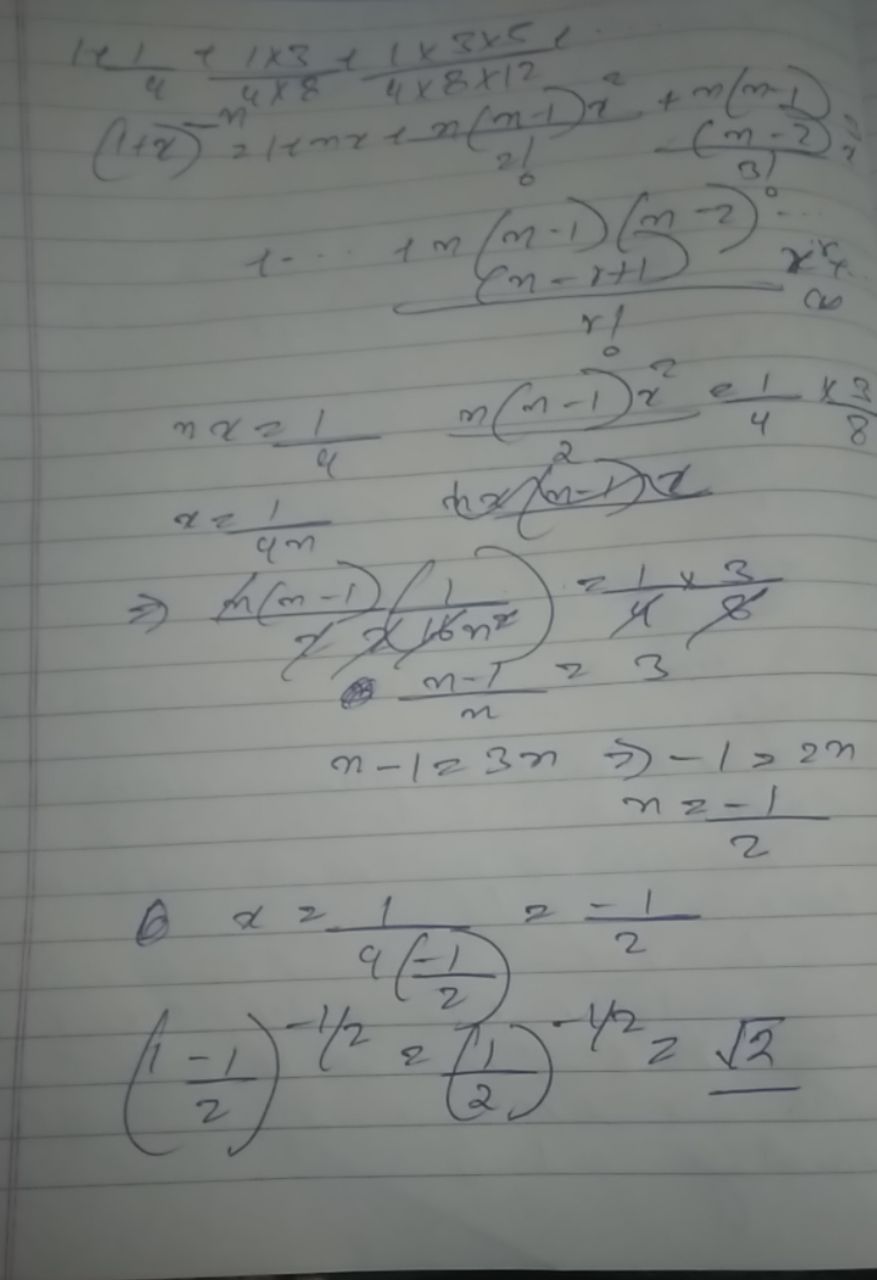 1 + 1/4 + (1×3)/(4×8) + (1×3×5)/(4×8×12) + ...
(1+x)^n = 1 + nx + n(n-1)x^2/2! + n(n-1)(n-2)/3!
+ .... + n(n-1)(n-2)...(n-r+1)/r! x^r + ∞
nx = 1/4    n(n-1)x^2/2 = 1/4 × 3/8
x = 1/4n    nx(n-1)x
⇒ n(n-1)/2 (1/16n^2) = 1/4 × 3/8
(n-1)/n = 3
n - 1 = 3n ⇒ -1 = 2n
n = -1/2
x = 1/4(-1/2) = -1/2
(1 - 1/2)^-1/2 = (1/2)^-1/2 = √2